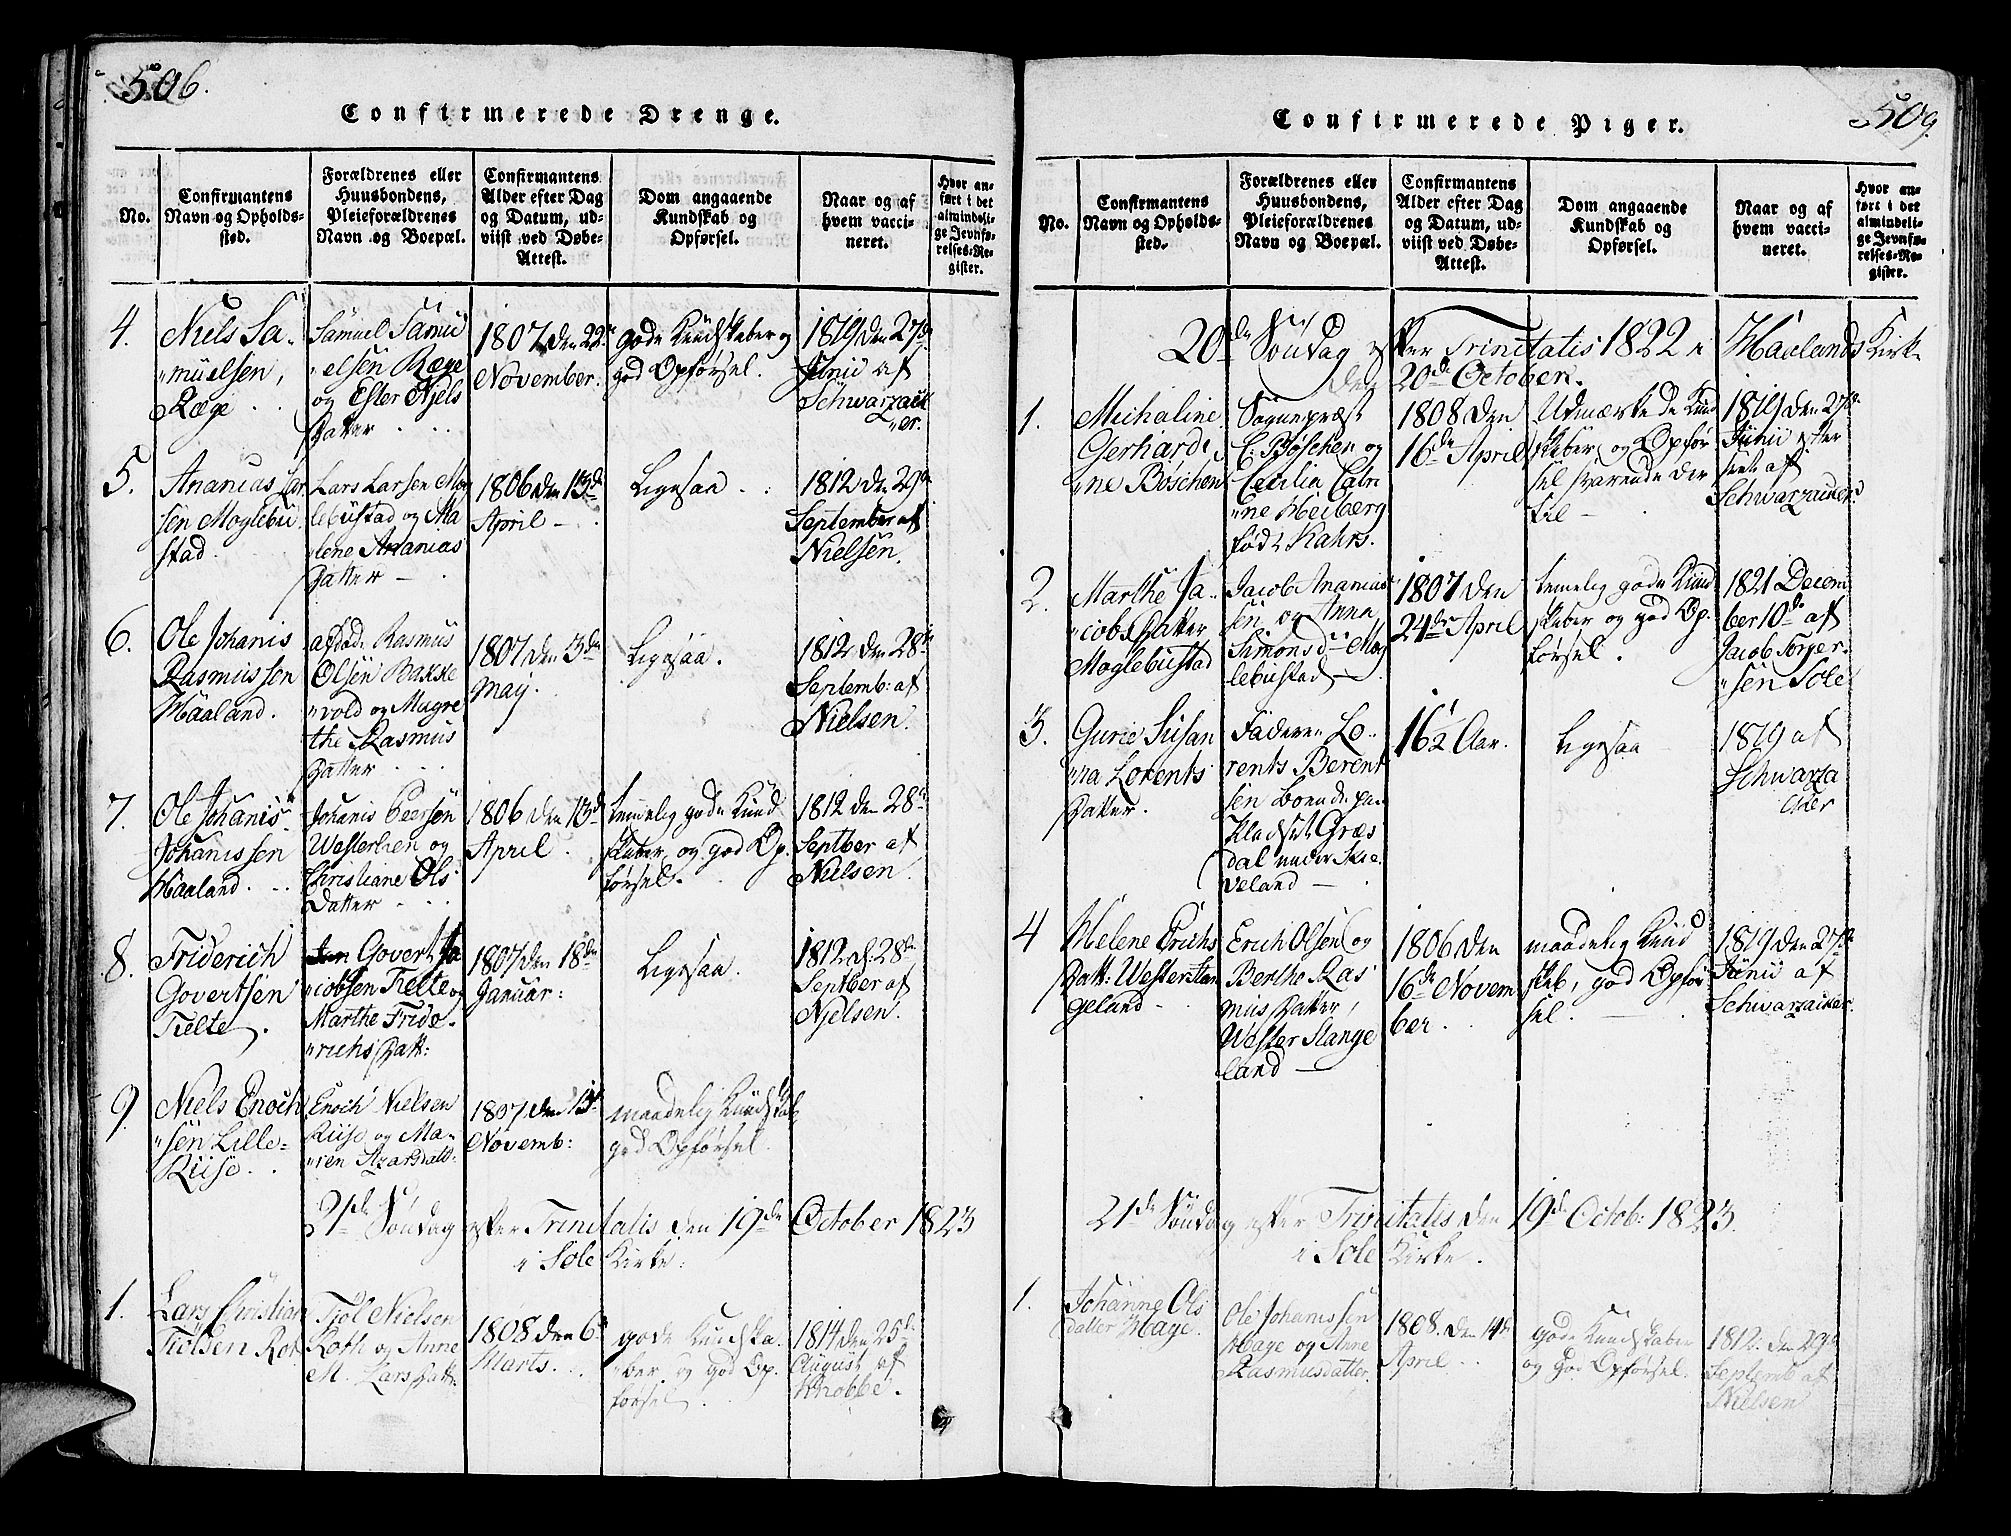 506.
Confirmerede Drenge.
No.
Confirmantens
Navn og Opholds-
sted.
Forældrenes eller
Huusbondens,
Pleieforældrenes
Navn og Boepæl.
Confirmantens
Alder efter Dag
og Datum, ud-
viist ved Døbe-
Attest.
Dom angaaende
Kundskab og
Opførsel.
Naar og af
hvem vacci-
neret.
Hvor an-
ført i det
almindeli-
ge Jevnfø-
relses-Re-
gister.
4.
Niels Sa-
muelsen,
Ræge
Samuel Samu
elsen Ræge
og Ester Njels
Datter
1807 den 22de
November.
gode Kundskaber og
god Opførsel.
1819 den 27de
Junii af
Schwarzack
er.
5.
Ananias Lar
sen Moglebu
stad.
Lars Larsen Mog
lebustad og Ma
lene Ananias
Datter
1806 den 13de
April
Ligesaa
1812 den 29de
September af
Nielsen.
6.
Ole Johanis
Rasmussen
Haaland.
afdøde Rasmus
Olsen Bakke
vold og Magre
the Rasmus
Datter
1807 den 3de
Maij.
Ligesaa.
1812 den 28de
Septemb: af
Nielsen.
7.
Ole Johanis
Johanissen
Haaland.
Johanis Peersen
Westerhen og
Christiane Ols
Datter
1806 den 13de
April
temmelig gode Kund
skaber og god Op.
førsel.
1812 den 28de
Septber af
Nielsen
8.
Friderich
Govertsen
Tielte.
Govert Ja
cobsen Tielte og
Marthe Fride-
richs Datt:
1807 den 18de
Januar:
Ligesaa.
1812 d. 28de
Septber af
Njelsen.
9
Niels Enoch
sen Lille-
Riise.
Enoch Nielsen
Riise og Ma-
ren Azarsdatt:
1807 den 15de
Novemb:
maadelig Kundskab,
god Opførsel.
21de Søndag efter Trinitatis den 19de October 1823
i Sole Kirke:
1.
Lars Christian
Tiølsen Rot
Tjøl Nielsen
Roth og Anne
M. Lars Datt:
1808 den 6te
Marts.
gode Kundska
ber og god Op.
førsel
1814 den 25de
August af
Knobbe.
509.
Confirmerede Piger.
No.
Confirmantens
Navn og Opholds-
sted.
Forældrenes eller
Huusbondens,
Pleieforældrenes
Navn og Boepæl.
Confirmantens
Alder efter Dag
og Datum, ud-
viist ved Døbe-
Attest.
Dom angaaende
Kundskab og
Opførsel.
Naar og af
hvem vacci-
neret.
Hvor an-
ført i det
almindeli-
ge Jevnfø-
relses-Re-
gister.
20de Søndag efter Trinitatis 1822 i Haalands Kirke
den 20de October.
1.
Michaline
Gerhardi
ne Bøschen
Sognepræst
C. Bøschen og
Cecilia Catri
ne Heiberg
fød: Kahrs.
1808 den
16de April
Udmærkede Kund
skaber og Opfør
sel svarende der
til
1819 den 27de
Junii efter
af
Schwarzacker
2.
Marthe Ja-
cobs Datter
Moglebustad
Jacob Ananias
sen og Anna
Simonsd: Mog
lebustad
1807 den
24de April
temelig gode Kund
skaber og god Op.
førsel.
1821 Decem
ber 10de af
Jacob Torjer
sen Sole
3.
Gurie Susan
na Lorents
Datter.
Faderen Lo-
rents Berent
sen boende paa
Pladset Græs
dal under Skie
veland
16½ Aar.
Ligesaa
1819 af
Schwarza
cker
4
Helene Erichs
Datt: Wester Stan
geland
Erich Olsen og
Berthe Ras
mus Datter,
Wester Stange
land
1806 den
16de Novem
ber.
maadelig Kund
skab, god Opfør
sel.
1819 den 27de
Junii af
Schwarzacker.
21de Søndag efter Trinitatis den 19de Octob: 1823.
i Sole Kirke.
1.
Johanne Ols
datter Hage.
Ole Johanissen
Hage og Anne
Rasmusdatter.
1808. den 14de
April
gode Kundskaber
og god Opførsel.
1812. den 29de
Septemb af
Nielsen